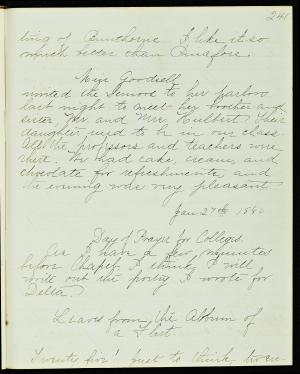 241
ting of Bunthorne. I like it so
much better than Pinafore.
Miss Goodsell
invited the Seniors to her parlors
last night to meet her brother and
sister, Mr. and Mrs. Hulbert. Their
daughter used to be in our class.
All the professors and teachers were
there. We had cake, cream, and
chocolate for refreshments, and
the evening was very pleasant.
Jan 27th 188
Day of Prayer for Colleges.
As I have a few minutes
before Chapel, I think I will
write out the poetry I wrote for
Delta.
Leaves from the Album of
a Flirt.
Twenty five! just to think, twen-